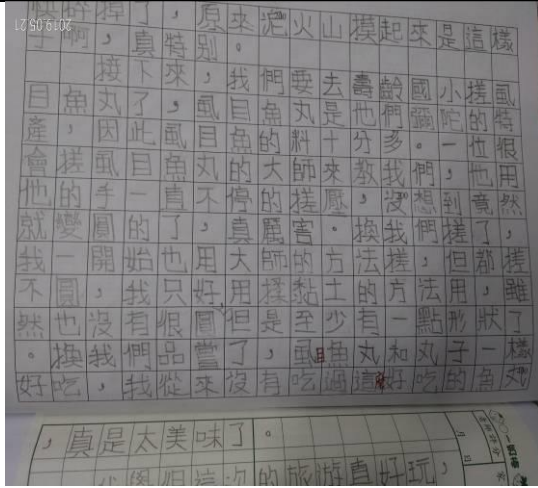 快掉了，原來泥火山摸起來是這樣
子啊，真特別。
接下來，我們要去壽齡國小搓虱
目魚丸了，虱目魚丸是他們彌陀的特
產，因此虱目魚的料十分多。一位很
會搓虱目魚丸的大師來教我們，他用
他的手一直不停的搓壓，沒想到竟然
就變圓的了，真厲害。換我們搓了，
我一開始也用大師的方法搓，但都搓
不圓，我只好用揉黏土的方法用，雖
然也沒有很圓但是至少有一點形狀了
。換我們品嘗了，虱目魚丸和丸子一樣
好吃，我從來沒有吃過這好吃的魚丸
，真是太美味了。
這次的旅遊真好玩，
2019.05.21